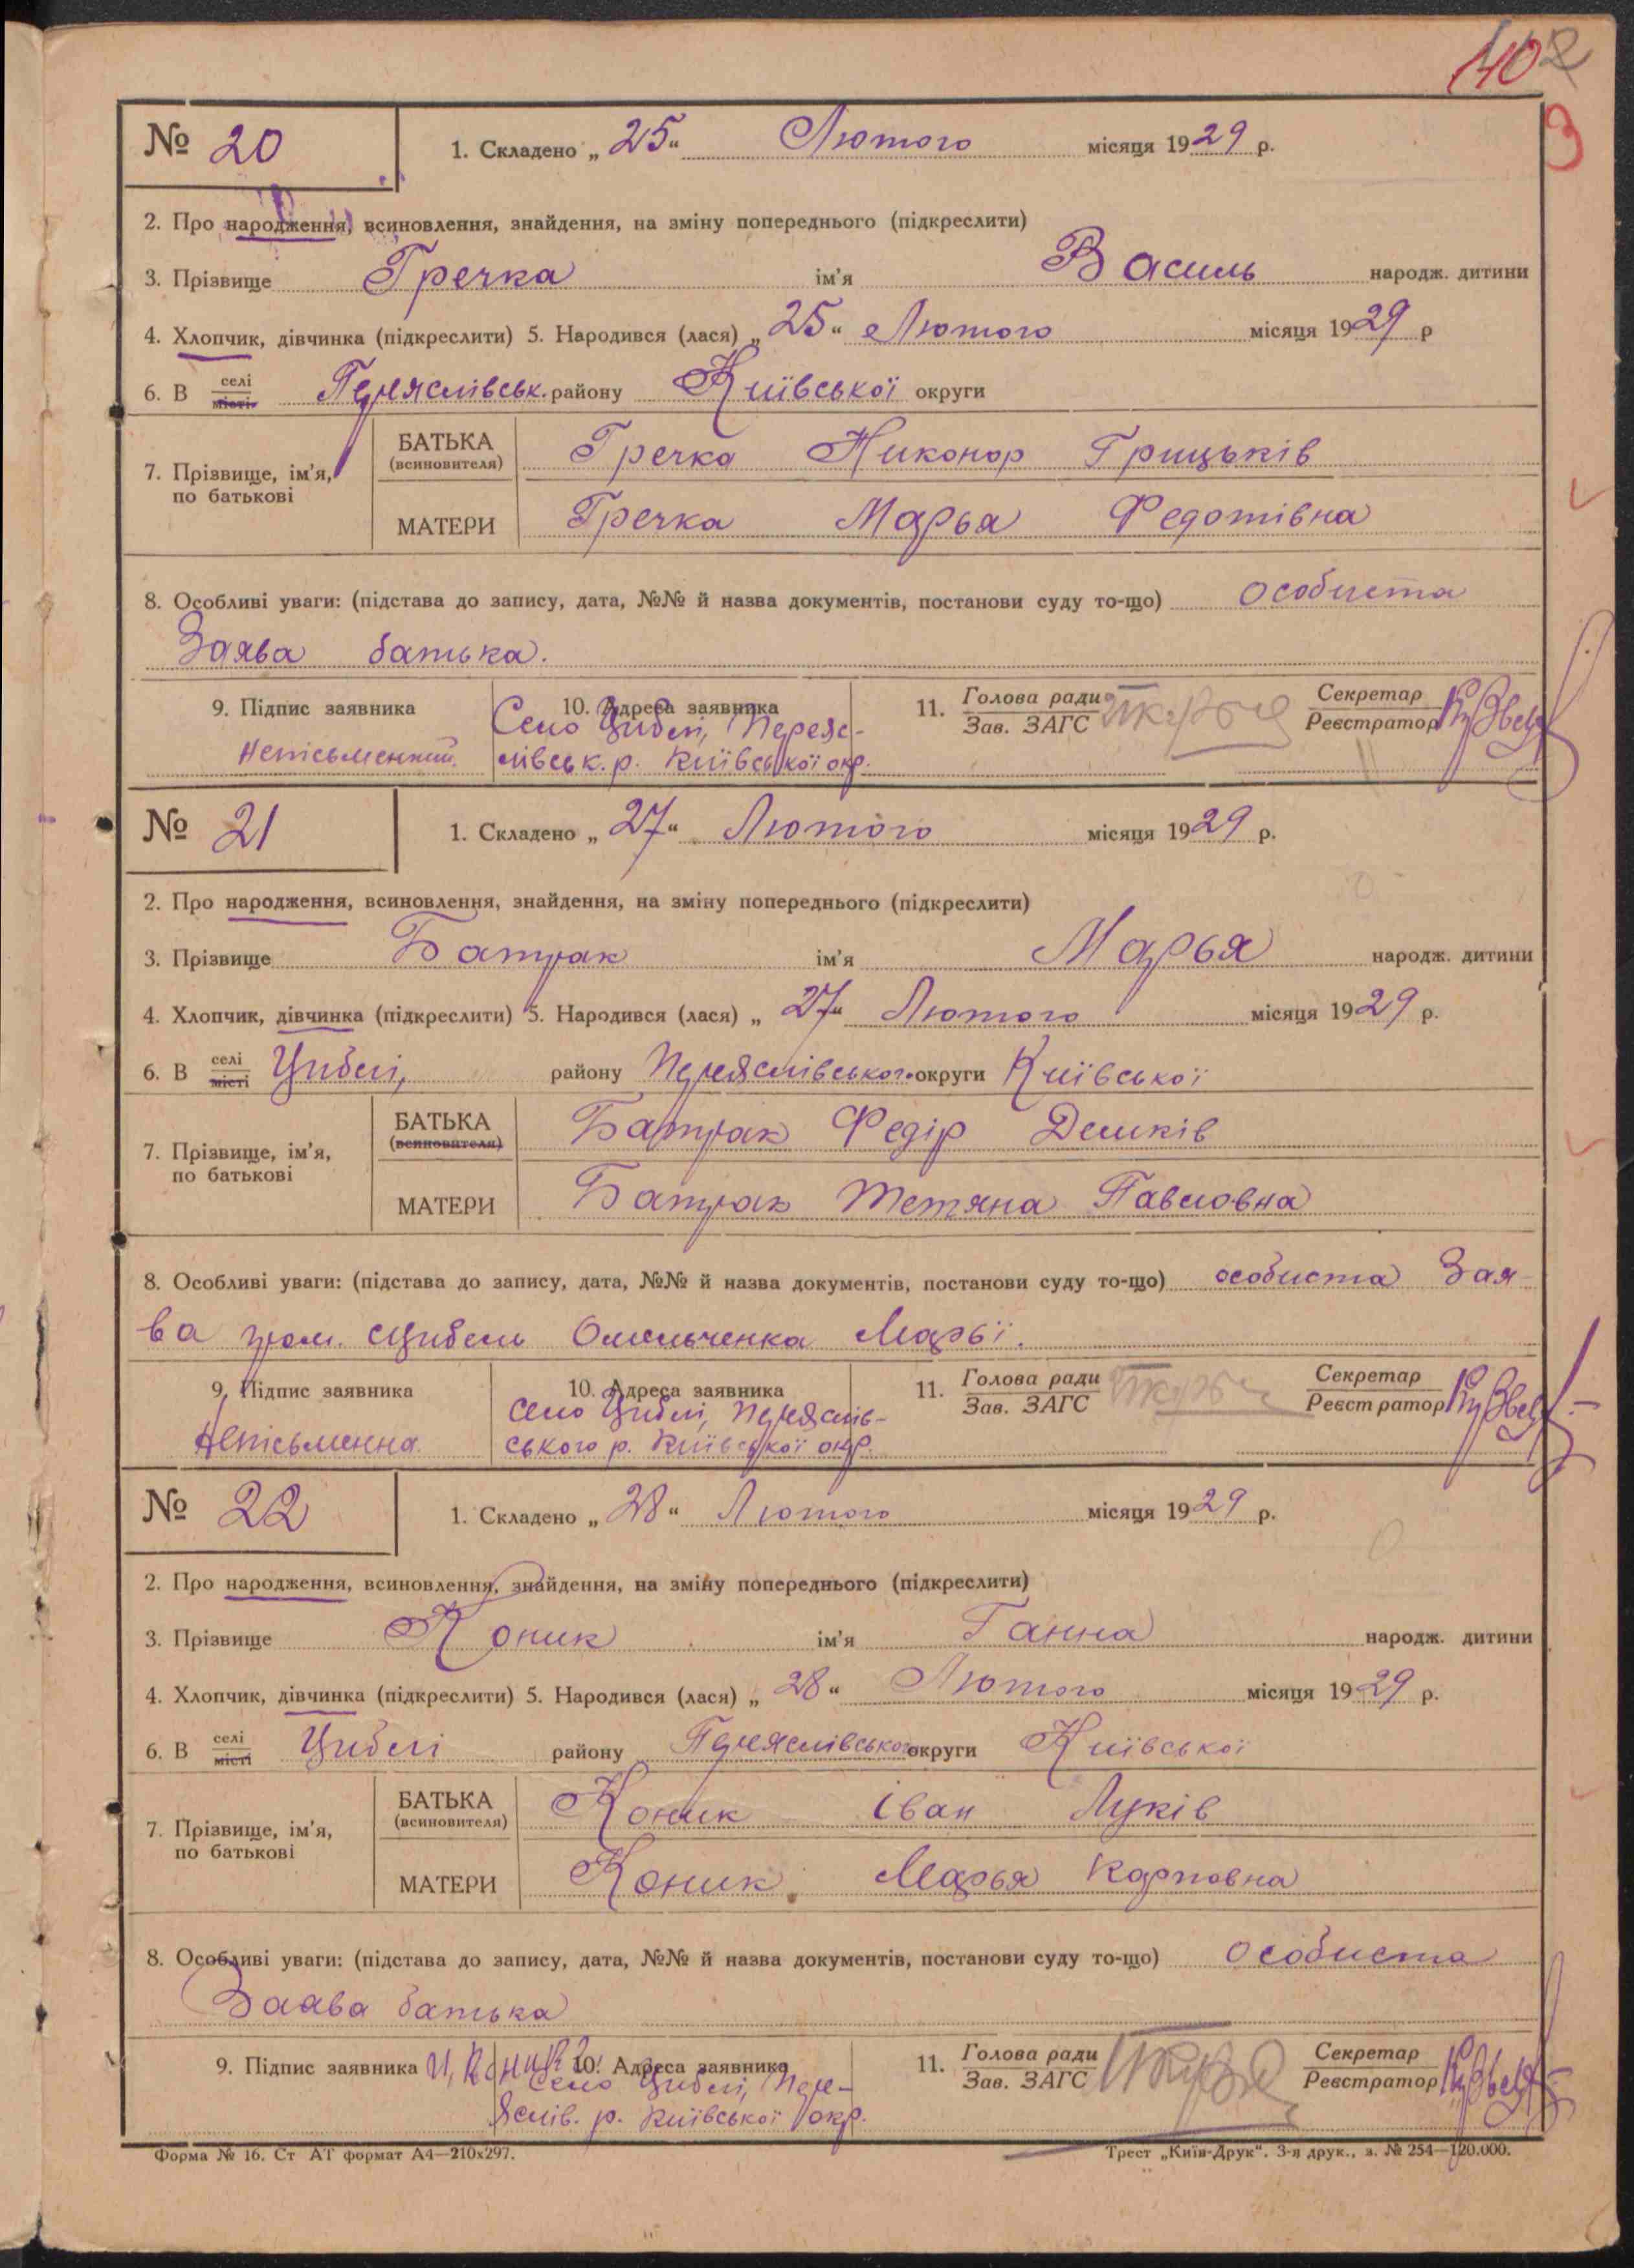 402
3
№ 20
1. Складено „25“ Лютого місяця 1929 р.
2. Про народження, всиновлення, знайдення, на зміну попереднього (підкреслити)
3. Прізвище Гречка ім'я Василь народж. дитини
4. Хлопчик, дівчинка (підкреслити) 5. Народився (лася) „25“ Лютого місяця 1929 р
6. В селі місті Переяслівськ. району Київської округи
7. Прізвище, ім'я, по батькові
БАТЬКА (всиновителя) Гречка Никонор Грицьків
МАТЕРИ Гречка Марья Федотівна
8. Особливі уваги: (підстава до запису, дата, №№ й назва документів, постанови суду то-що) особиста
Заява батька.
9. Підпис заявника 10. Адреса заявника 11. Голова ради Зав. ЗАГС Секретар Реєстратор
Село Цибелі, Переяс-
Неписьменний. лівськ. р. Київської окр.
№ 21
1. Складено „27“ Лютого місяця 1929 р.
2. Про народження, всиновлення, знайдення, на зміну попереднього (підкреслити)
3. Прізвище Батрак ім'я Марья народж. дитини
4. Хлопчик, дівчинка (підкреслити) 5. Народився (лася) „27“ Лютого місяця 1929 р.
6. В селі місті Цибелі, району Переяслівського округи Київської
7. Прізвище, ім'я, по батькові
БАТЬКА (всиновителя) Батрак Федір Демків
МАТЕРИ Батрак Тетяна Павловна
8. Особливі уваги: (підстава до запису, дата, №№ й назва документів, постанови суду то-що) особиста Зая-
ва гром. Цибель Омельченка Марьї.
9. Підпис заявника 10. Адреса заявника 11. Голова ради Зав. ЗАГС Секретар Реєстратор
Село Цибелі, Переяслів-
Неписьменна. ського р. Київської окр.
№ 22
1. Складено „28“ Лютого місяця 1929 р.
2. Про народження, всиновлення, знайдення, на зміну попереднього (підкреслити)
3. Прізвище Коник ім'я Ганна народж. дитини
4. Хлопчик, дівчинка (підкреслити) 5. Народився (лася) „28“ Лютого місяця 1929 р.
6. В селі місті Цибелі району Переяслівського округи Київської
7. Прізвище, ім'я, по батькові
БАТЬКА (всиновителя) Коник Іван Луків
МАТЕРИ Коник Марья Карповна
8. Особливі уваги: (підстава до запису, дата, №№ й назва документів, постанови суду то-що) особиста
Заава батька
9. Підпис заявника И, Коник 10. Адреса заявника 11. Голова ради Зав. ЗАГС Секретар Реєстратор
Село Цибелі, Пере-
яслів. р. Київської окр.
Форма № 16. Ст АТ формат А4—210х297. Трест „Київ-Друк“. 3-я друк., з. № 254—120.000.